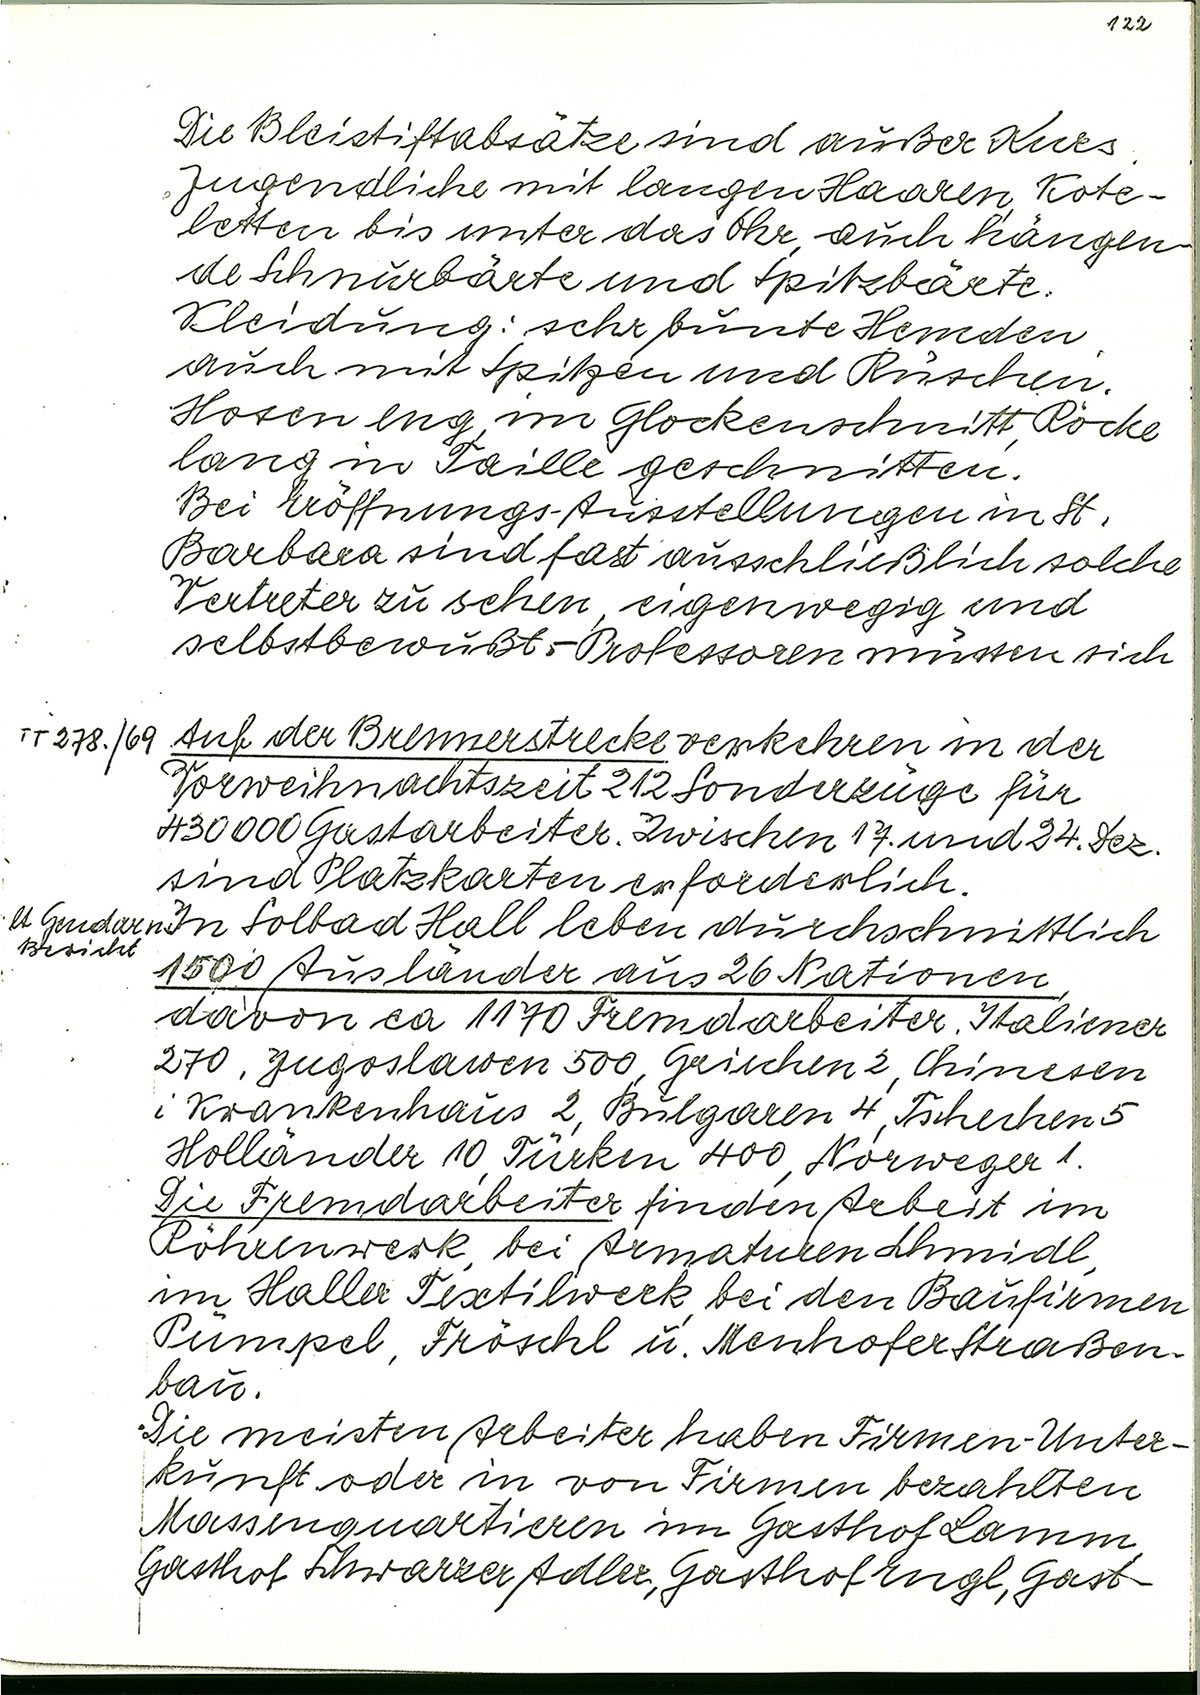 122
Die Bleistiftabsätze sind außer Kurs.
Jugendliche mit langen Haaren, Kote-
letten bis unter das Ohr, auch hängen-
de Schnurbärte und Spitzbärte.
Kleidung: sehr bunte Hemden,
auch mit Spitzen und Rüschen.
Hosen eng, im Glockenschnitt, Röcke
lang in Taille geschnitten.
Bei Eröffnungs-Ausstellungen in St.
Barbara sind fast ausschließlich solche
Vertreter zu sehen, eigenwegig und
selbstbewußt. – Professoren müssen sich
TT 278./69 Auf der Brennerstrecke verkehren in der
Vorweihnachtszeit 212 Sonderzüge für
430000 Gastarbeiter. Zwischen 17. und 24. Dez.
sind Platzkarten erforderlich.
lt Gendarm. In Solbad Hall leben durchschnittlich
Bericht
1500 Ausländer aus 26 Nationen,
davon ca 1170 Fremdarbeiter. Italiener
270, Jugoslawen 500, Griechen 2, Chinesen
i Krankenhaus 2, Bulgaren 4, Tschechen 5
Holländer 10, Türken 400, Norweger 1.
Die Fremdarbeiter finden Arbeit im
Röhrenwerk, bei Armaturen Schmidl,
im Haller Textilwerk, bei den Baufirmen
Pümpel, Fröschl u. Menhofer Straßen-
bau.
Die meisten Arbeiter haben Firmen-Unter-
kunft oder in von Firmen bezahlten
Massenquartieren im Gasthof Lamm,
Gasthof Schwarzer Adler, Gasthof Engl, Gast-